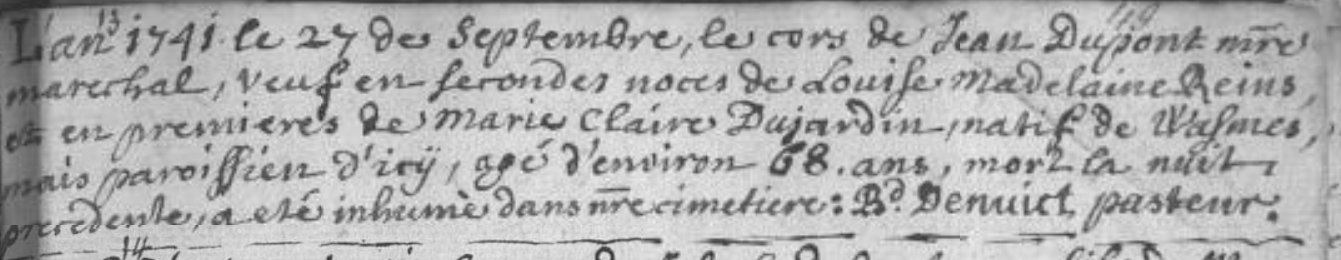 L'an 1741 le 27 de Septembre, le cors de Jean Dupont mr̄e
marechal, veuf en secondes noces de Louise Madelaine Reins,
et en premieres de Marie Claire Dujardin, natif de Wasmes,
mais paroissien d'icÿ, agé d'environ 68. ans, mort la nuit
precedente, a eté inhumé dans nr̄e cimetiere: Bd. Denuict pasteur.